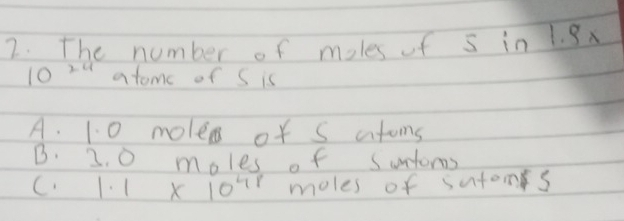 2. The number of moles of S in 1.8x
10²⁴ atomc of S is
A. 1.0 moles of S atoms
B. 3.0 moles of S atoms
C. 1.1 x 10⁴⁸ moles of S atoms